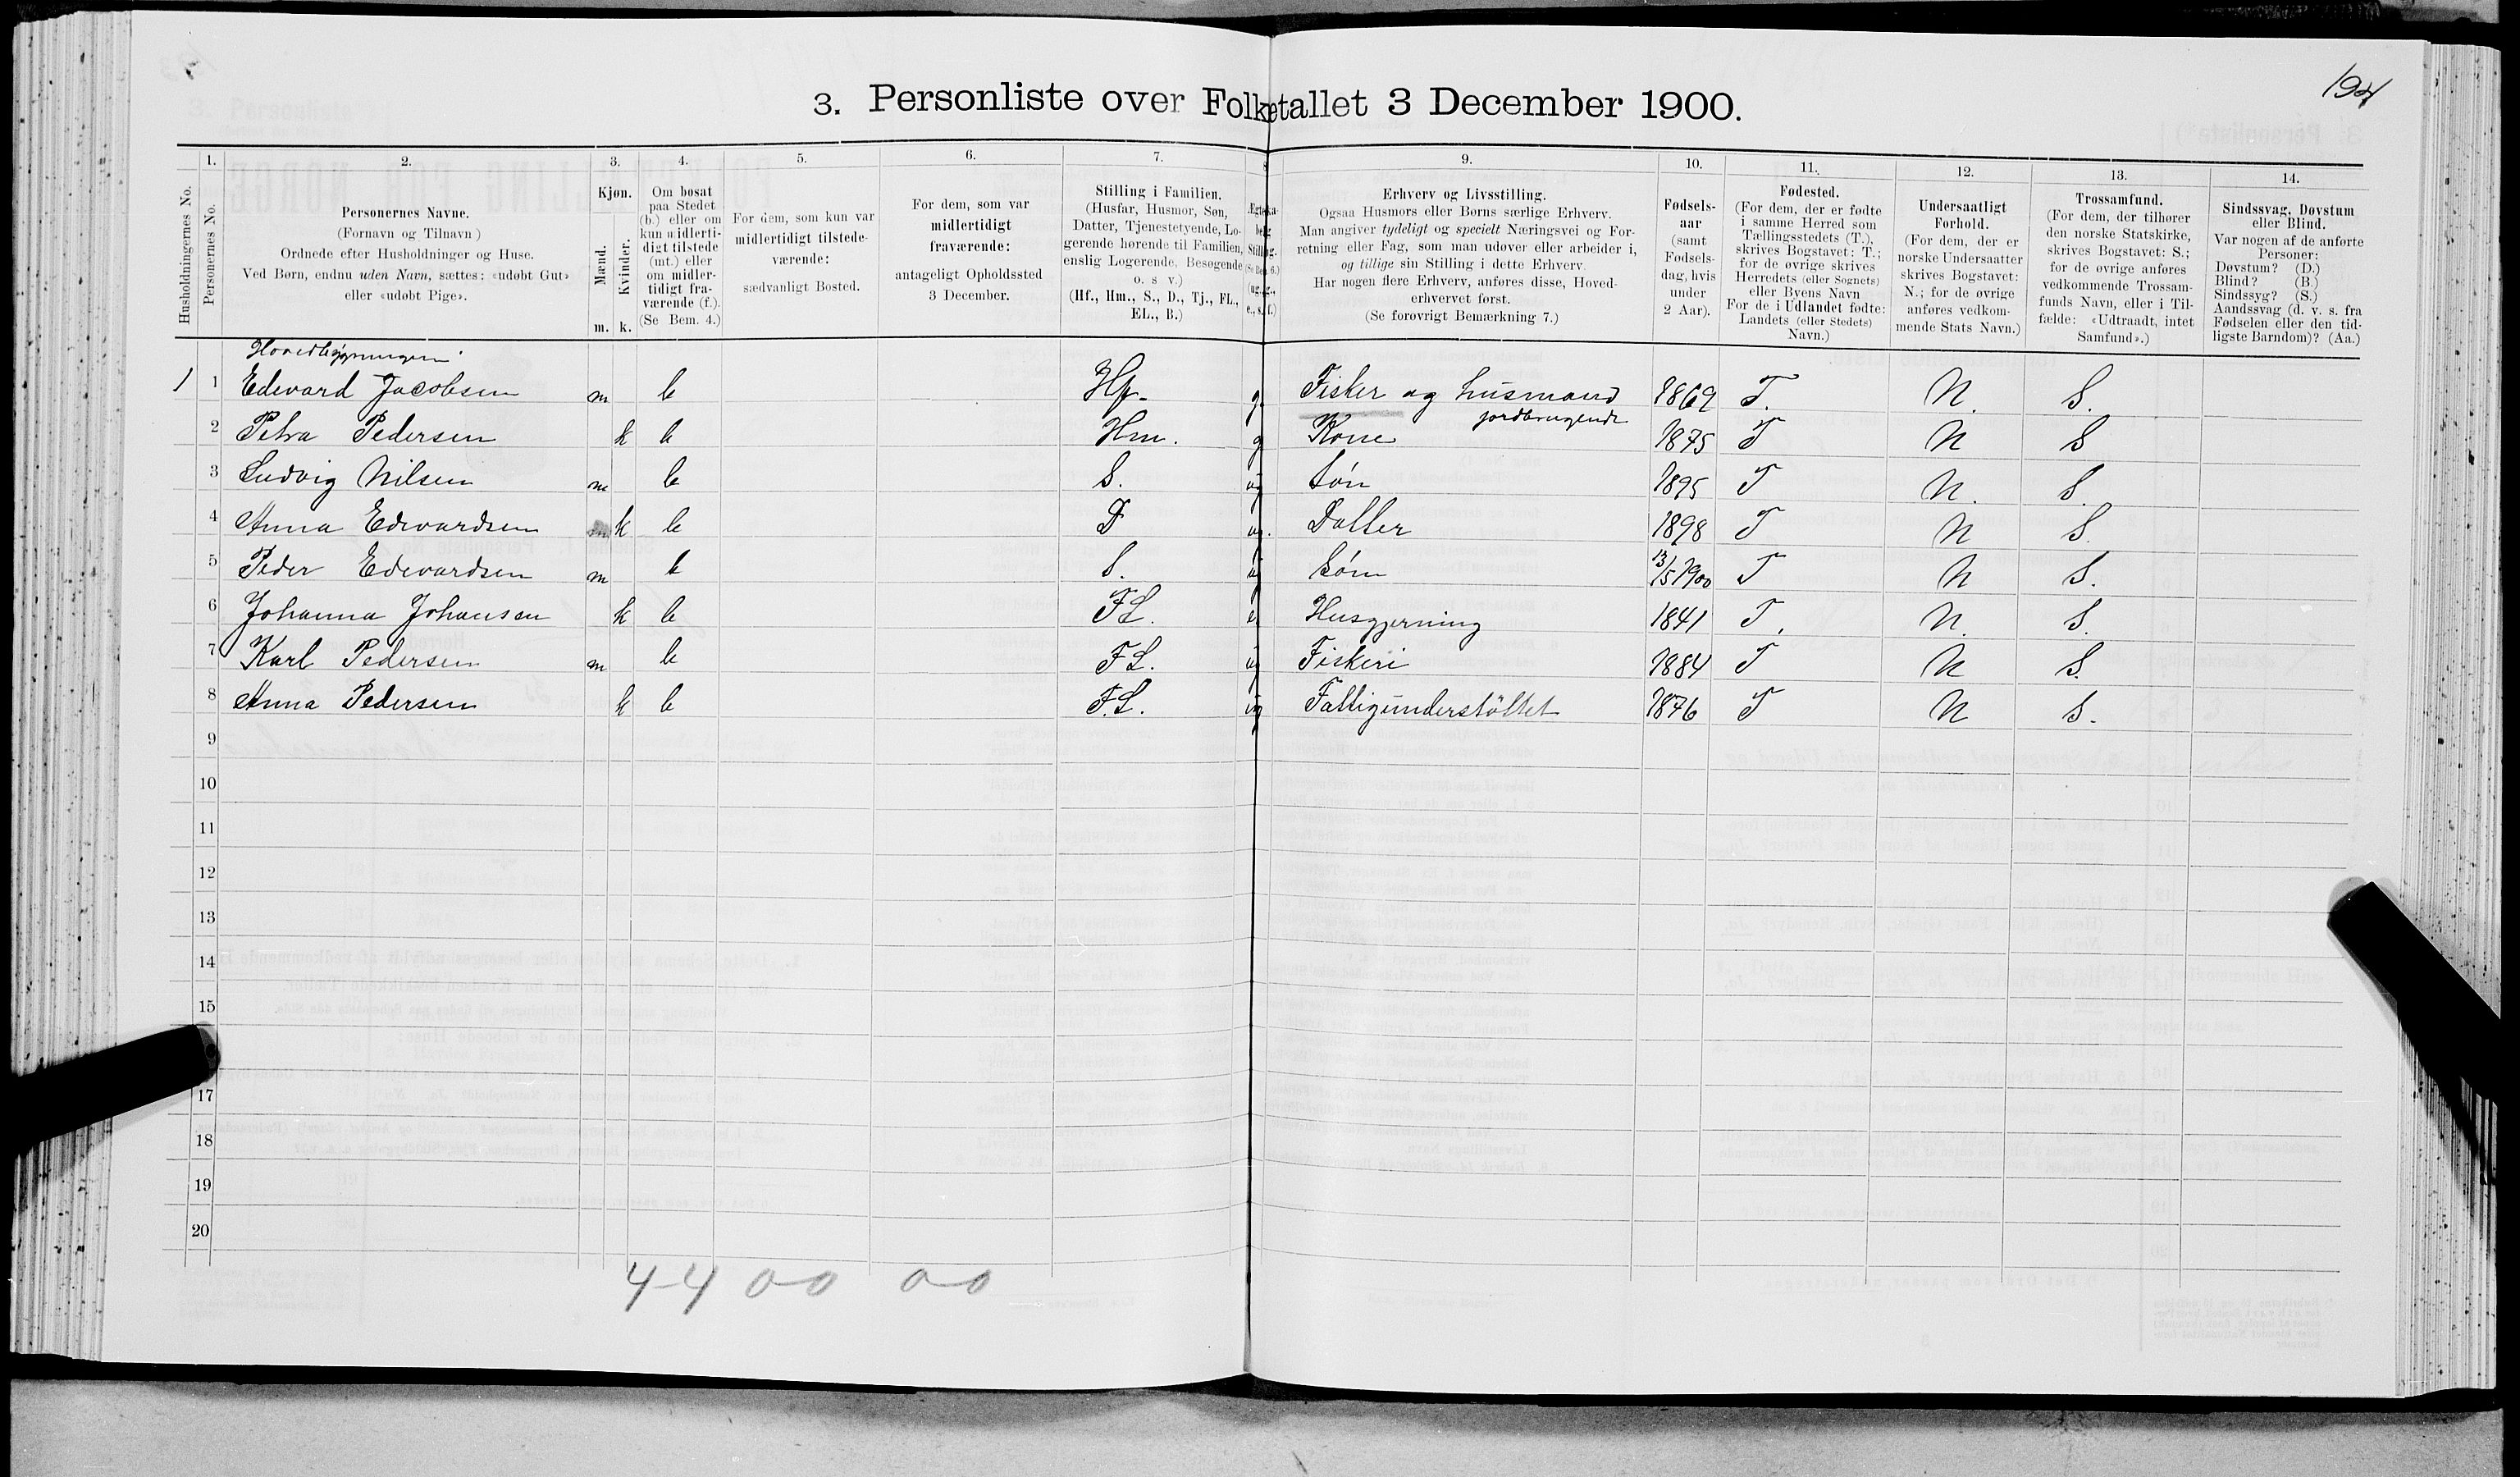 194
3. Personliste over Folketallet 3 December 1900.
1. 2. 3. 4. 5. 6. 7. 8 9. 10. 11. 12. 13. 14.
Husholdningernes No.
Personernes No.
Personernes Navne.
(Fornavn og Tilnavn)
Ordnede efter Husholdninger og Huse.
Ved Børn, endnu uden Navn, sættes: «udøbt Gut»
eller «udøbt Pige».
Kjøn.
Mænd.
Kvinder.
m. k.
Om bosat
paa Stedet
(b.) eller om
kun midlerti-
digt tilstede
(mt.) eller
om midler-
tidigt fra-
værende (f.).
(Se Bem. 4.)
For dem, som kun var
midlertidigt tilstede-
værende:
sædvanligt Bosted.
For dem, som var
midlertidigt
fraværende:
antageligt Opholdssted
3 December.
Stilling i Familien.
(Husfar, Husmor, Søn,
Datter, Tjenestetyende, Lo-
gerende hørende til Familien,
enslig Logerende, Besøgende
o. s v.)
(Hf., Hm., S., D., Tj., FL.,
EL., B.)
Erhverv og Livsstilling.
Ogsaa Husmors eller Børns særlige Erhverv.
Man angiver tydeligt og specielt Næringsvei og For-
retning eller Fag, som man udøver eller arbeider i,
og tillige sin Stilling i dette Erhverv.
Har nogen flere Erhverv, anføres disse, Hoved-
erhvervet først.
(Se forøvrigt Bemærkning 7.)
Fødsels-
aar
(samt
Fødsels-
dag, hvis
under
2 Aar).
Fødested.
(For dem, der er fødte
i samme Herred som
Tællingsstedets (T.),
skrives Bogstavet: T.;
for de øvrige skrives
Herredets (eller Sognets)
eller Byens Navn
For de i Udlandet fødte:
Landets (eller Stedets)
Navn.)
Undersaatligt
Forhold.
(For dem, der er
norske Undersaatter
skrives Bogstavet:
N.; for de øvrige
anføres vedkom-
mende Stats Navn.)
Trossamfund.
(For dem, der tilhører
den norske Statskirke,
skrives Bogstavet: S.;
for de øvrige anføres
vedkommende Trossam-
funds Navn, eller i Til-
fælde: «Udtraadt, intet
Samfund».)
Sindssvag, Døvstum
eller Blind.
Var nogen af de anførte
Personer:
Døvstum? (D.)
Blind? (B.)
Sindssyg? (S.)
Aandssvag (d. v. s. fra
Fødselen eller den tid-
ligste Barndom)? (Aa.)
Hovedbygningen
1 1 Edevard Jacobsen m b Hf. g. Fisker og husmand 1869 T. N. S.
jordbrugende
2 Petra Pedersen k b Hm. g Kone 1875 T N S
3 Ludvig Nilsen m b S. ug Søn 1895 T N. S.
4 Anna Edevardsen k b D ug. Datter 1898 T N S.
5 Peder Edevardsen m b S. ug Søn 13/5 1900 T N S.
6 Johanna Johansen k b FL. e. Husgjerning 1841 T. N. S.
7 Karl Pedersen m b FL. ug Fiskeri 1884 T N S.
8 Anna Pedersen k b F.L. ug Fattigunderstöttet 1876 T N S.
9
10
11
12
13
14
15
17
18
19
20
4-4 0-0 0-0